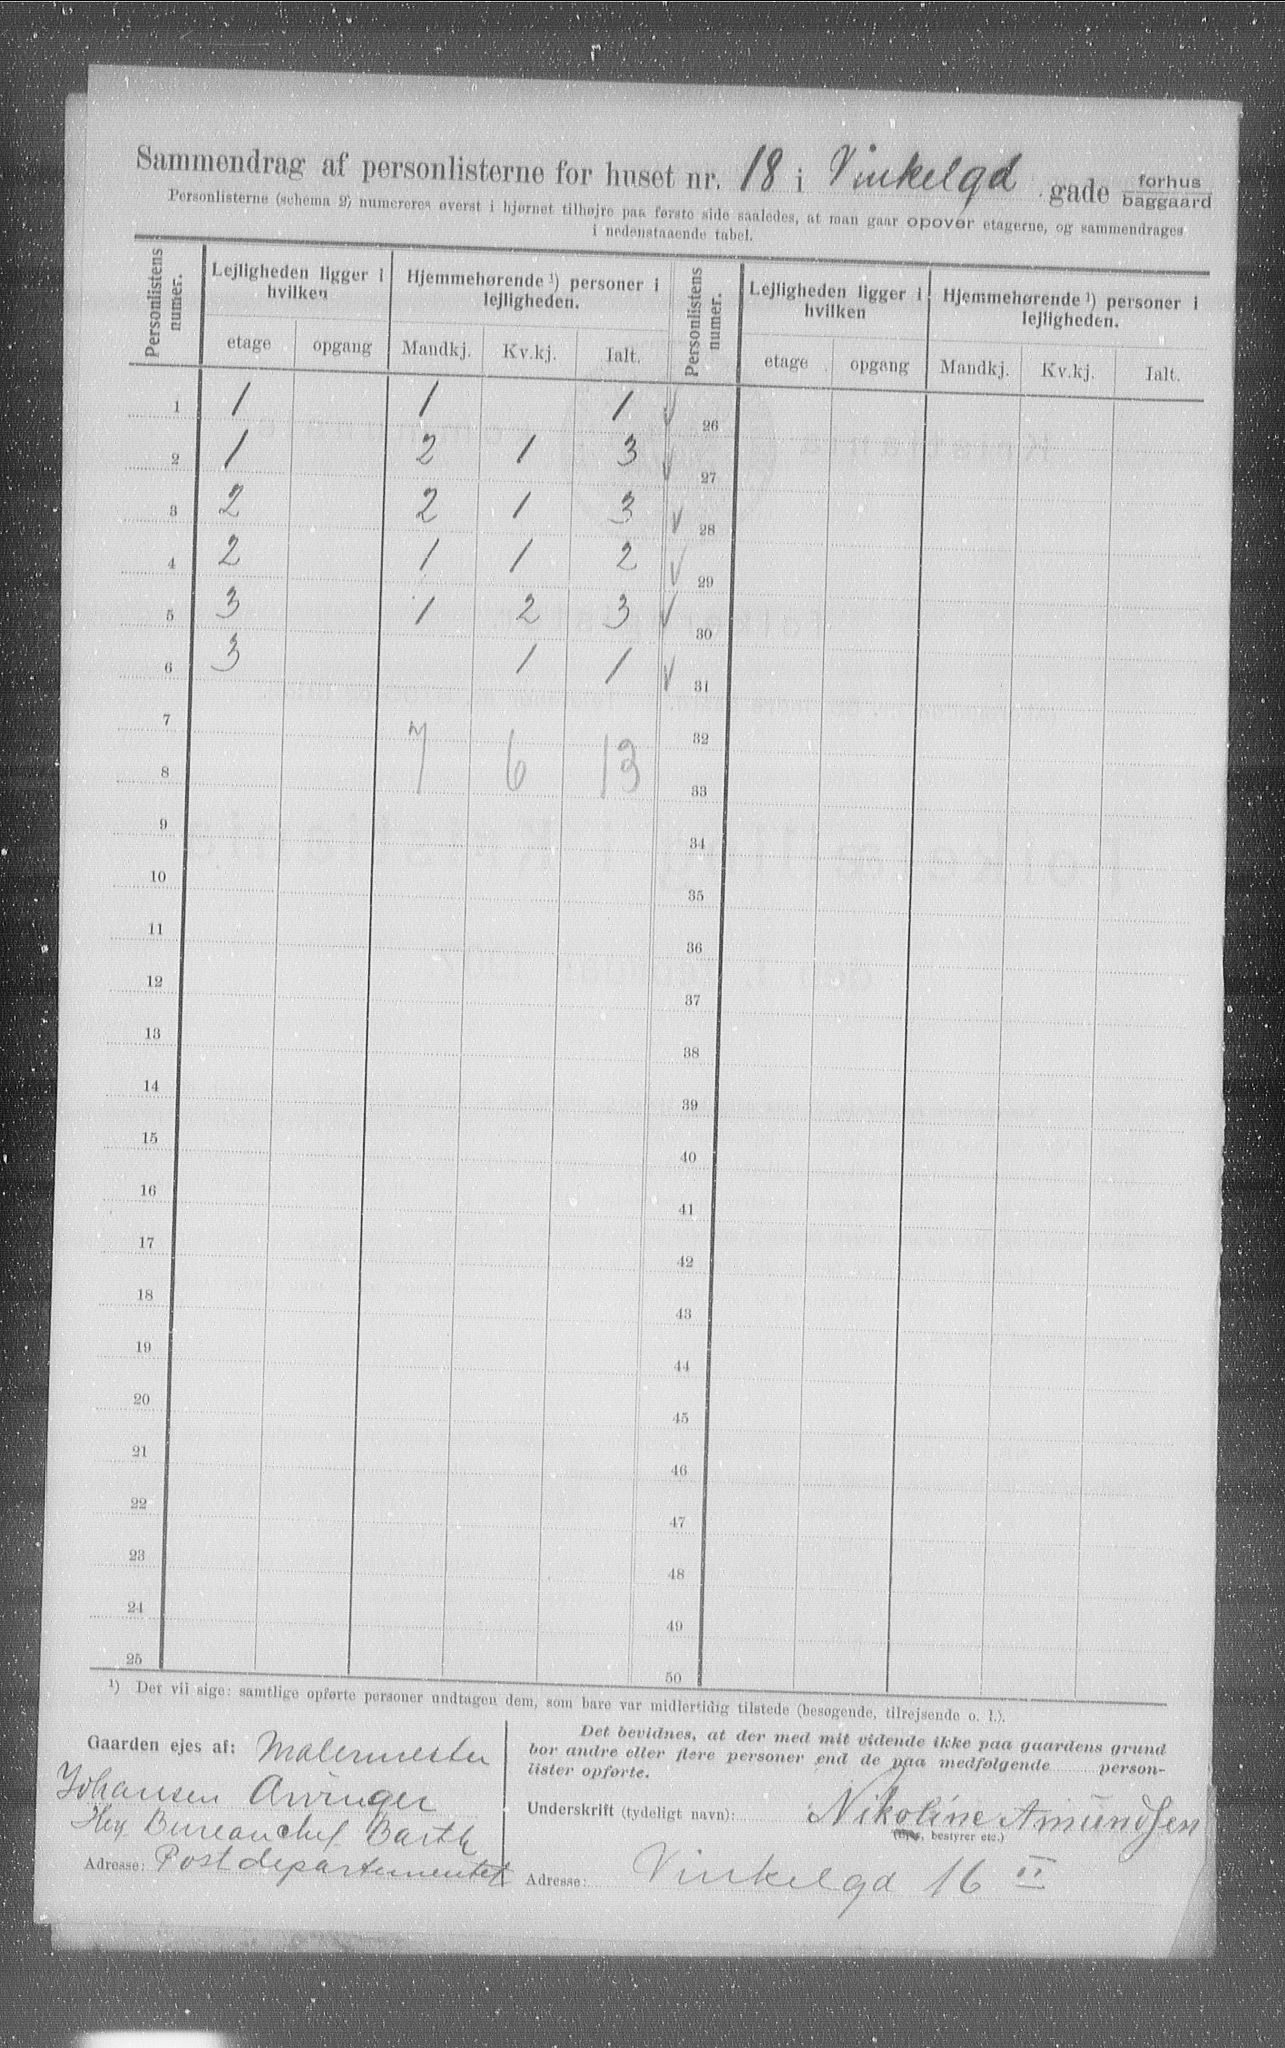 Sammendrag af personlisterne for huset nr. 18 i Vinkelgd gade forhus baggaard
Personlisterne (schema 2) numereres øverst i hjørnet tilhøjre paa første side saaledes, at man gaar opover etagerne, og sammendrages
i nedenstaaende tabel.
Personlistens numer. Lejligheden ligger i hvilken Hjemmehørende ¹) personer i lejligheden. Personlistens numer. Lejligheden ligger i hvilken Hjemmehørende ¹) personer i lejligheden.
etage opgang Mandkj. Kv.kj. Ialt. etage opgang Mandkj. Kv.kj. Ialt.
1 1 1 1 ✓ 26
2 1 2 1 3 ✓ 27
3 2 2 1 3 ✓ 28
4 2 1 1 2 ✓ 29
5 3 1 2 3 ✓ 30
6 3 1 1 ✓ 31
7 32
8 7 6 13 33
9 34
10 35
11 36
12 37
13 38
14 39
15 40
16 41
17 42
18 43
19 44
20 45
21 46
22 47
23 48
24 49
25 50
¹) Det vil sige: samtlige opførte personer undtagen dem, som bare var midlertidig tilstede (besøgende, tilrejsende o. l.).
Gaarden ejes af: Malermester
Johansen
Bureauchef Barth
Adresse: Postdepartementet
Det bevidnes, at der med mit vidende ikke paa gaardens grund
bor andre eller flere personer end de paa medfølgende person-
lister opførte.
Underskrift (tydeligt navn): Nikoline Amundsen
bestyrer etc.)
Adresse: Vinkelgd 16 II